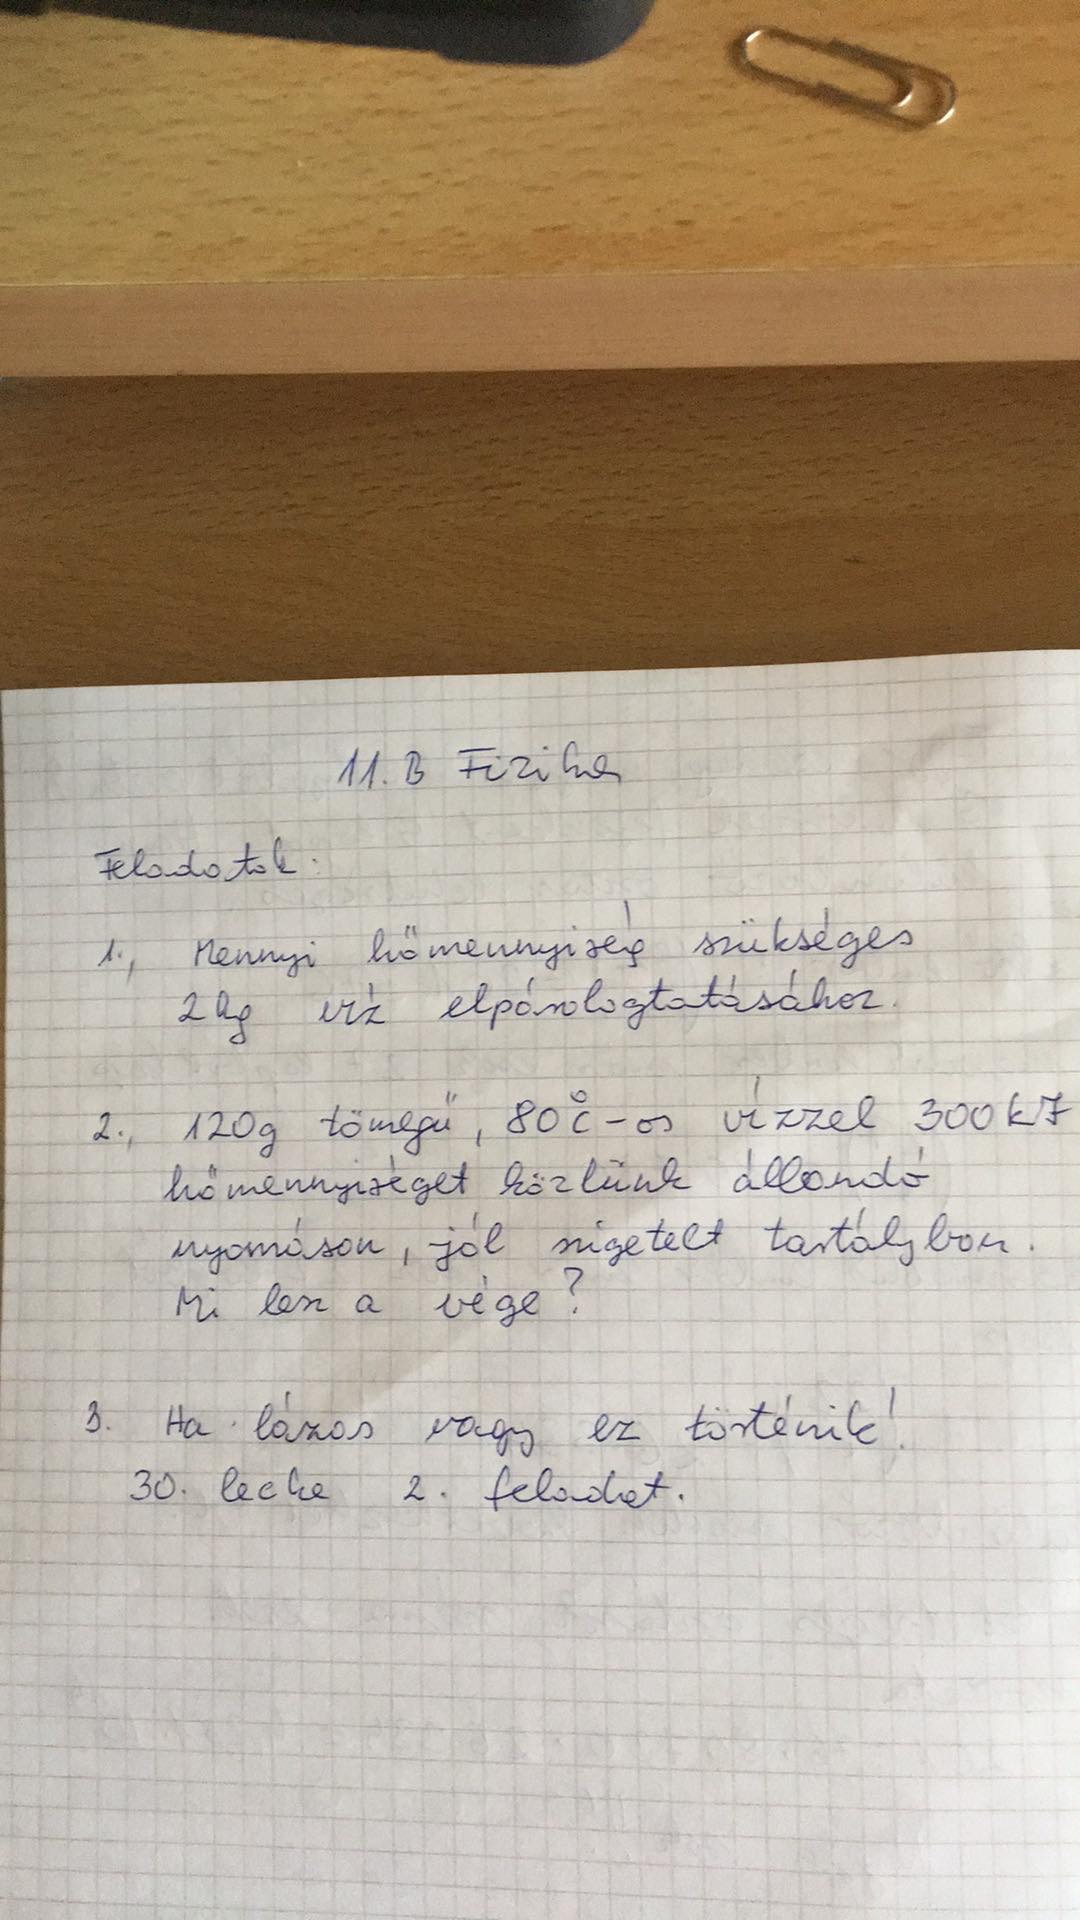 11.B Fizika
Feladatok:
1., Mennyi hőmennyiség szükséges
2kg víz elpárologtatásához.
2., 120g tömegű, 80°C-os vízzel 300kJ
hőmennyiséget közlünk állandó
nyomáson, jól szigetelt tartályban.
Mi lesz a vége?
3. Ha lázas vagy ez történik!
30. lecke 2. feladat.